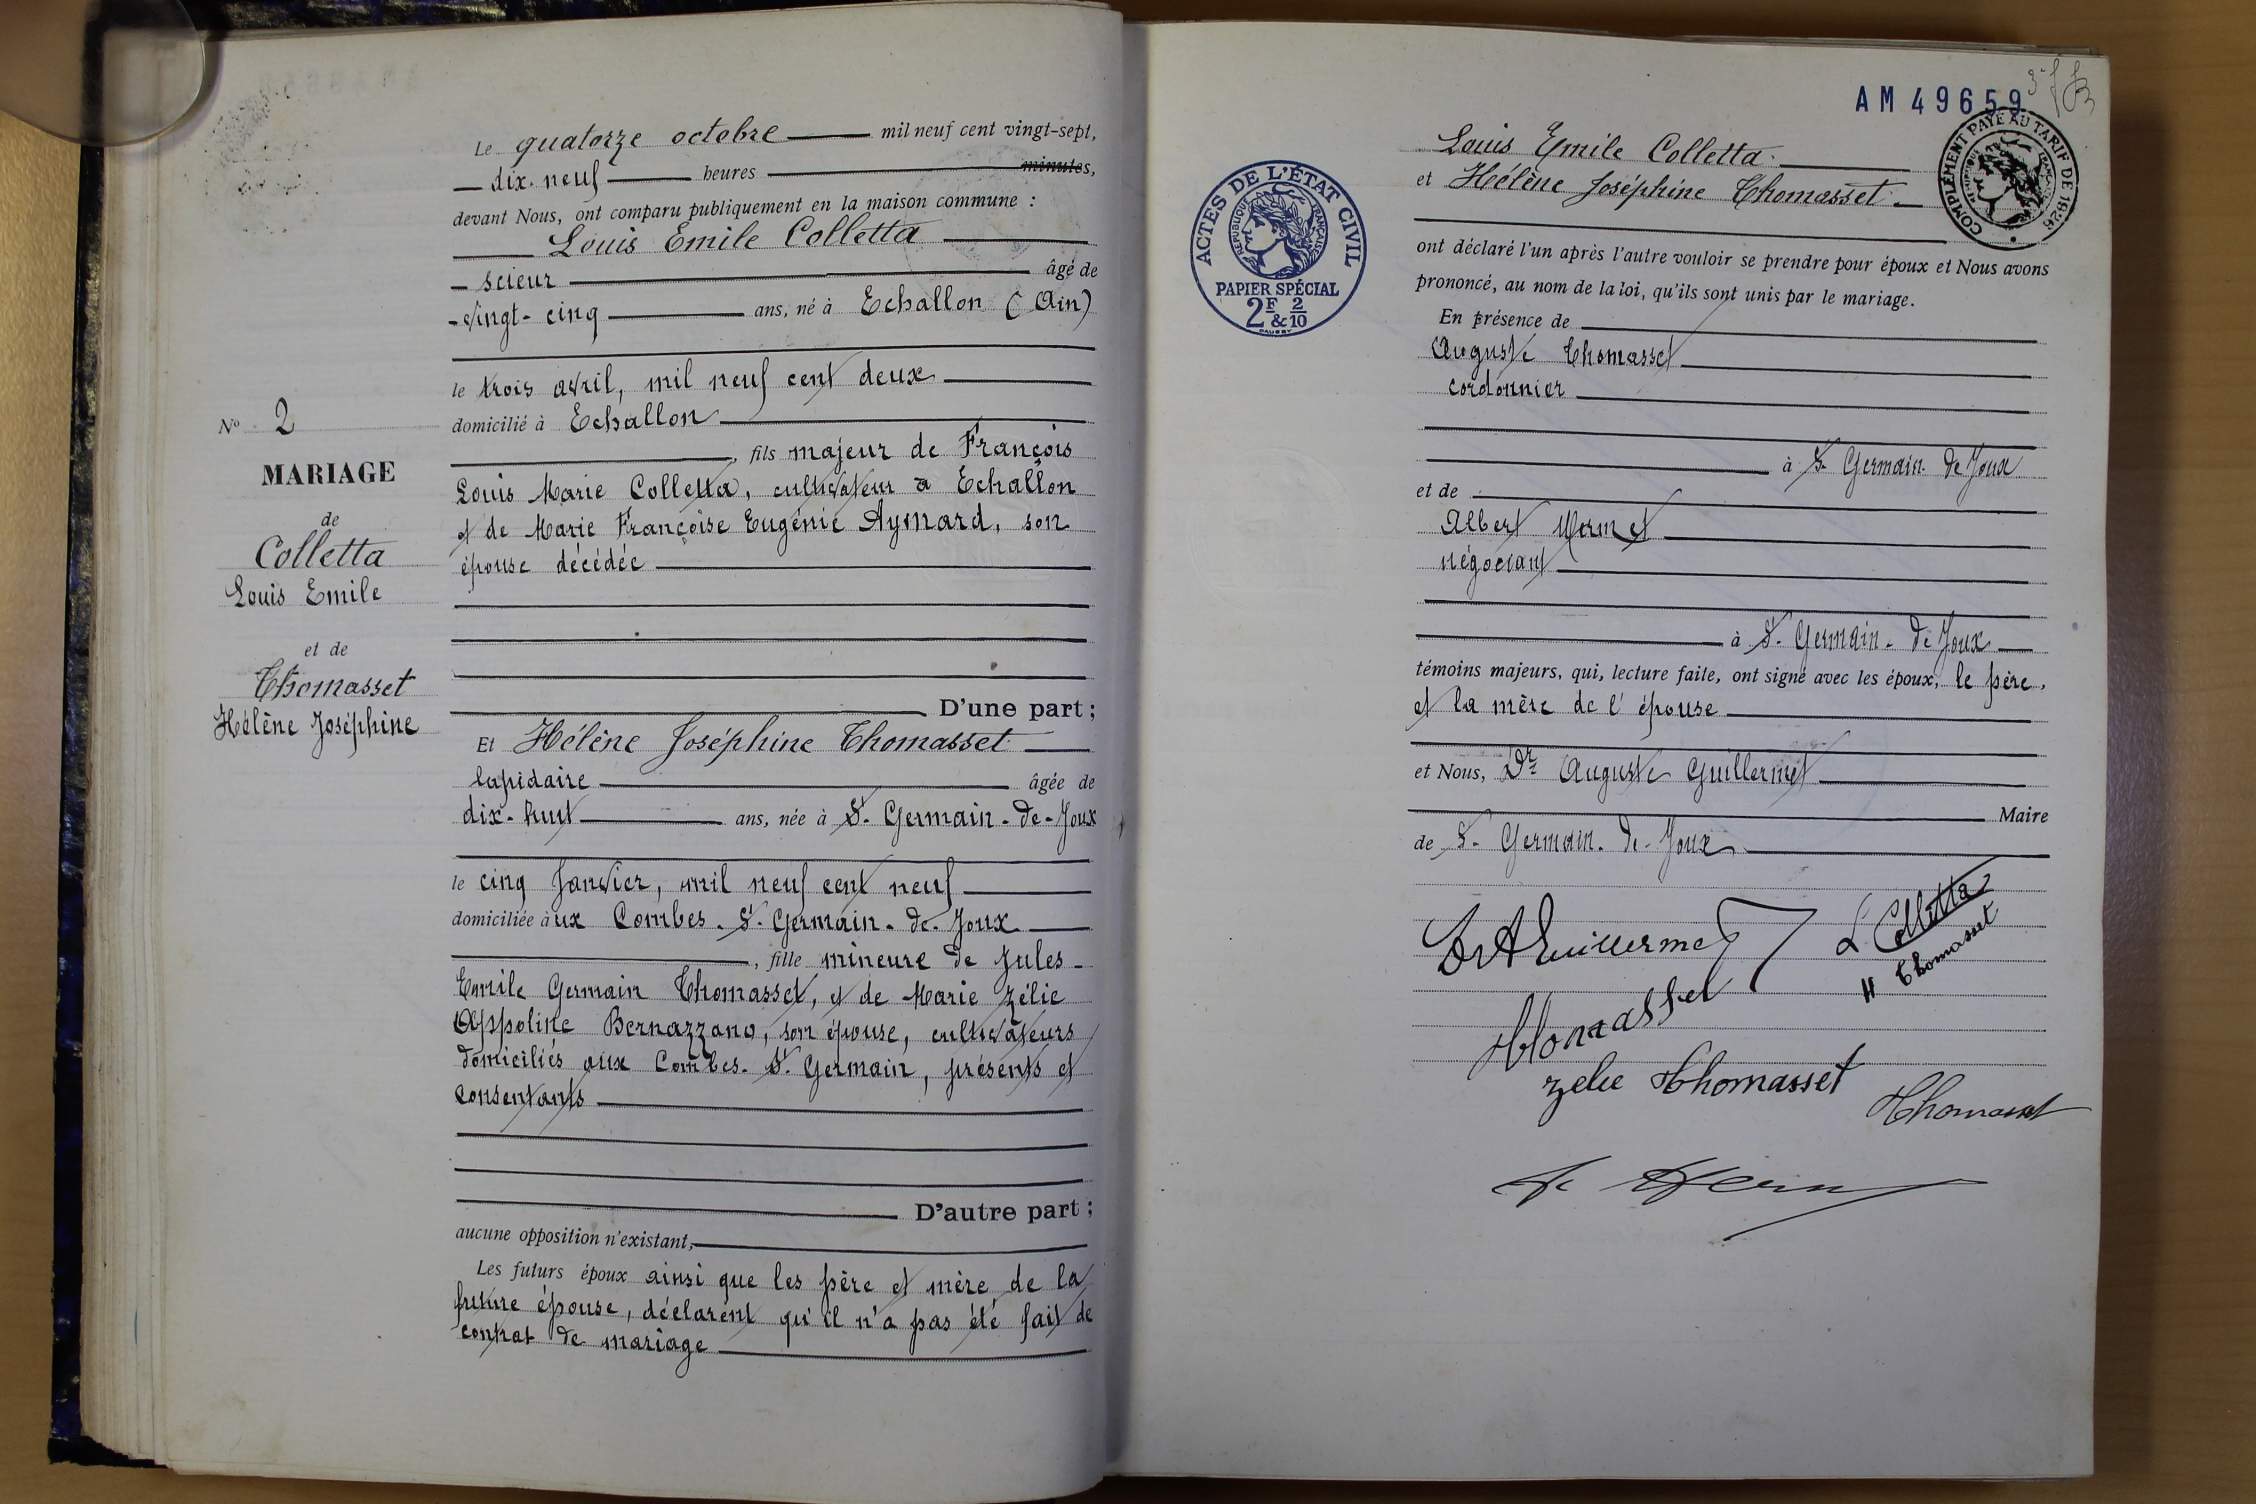 N° 2
MARIAGE
de
Colletta
Louis Emile
et de
Thomasset
Hélène Joséphine
Le quatorze octobre mil neuf cent vingt-sept,
dix-neuf heures minutes,
devant Nous, ont comparu publiquement en la maison commune :
Louis Emile Colletta
scieur âgé de
vingt-cinq ans, né à Echallon (Ain)
le trois avril, mil neuf cent deux
domicilié à Echallon
, fils majeur de François
Louis Marie Colletta, cultivateur a Echallon
et de Marie Françoise Eugénie Aymard, son
épouse décédée
D'une part ;
Et Hélène Joséphine Thomasset
lapidaire âgée de
dix-huit ans, née à St Germain-de-Joux
le cinq Janvier, mil neuf cent neuf
domiciliée à ux Combes. St Germain-de-Joux
, fille mineure de Jules-
Emile Germain Thomasset, et de Marie Zélie
Appoline Bernazzano, son épouse, cultivateurs
domiciliés aux Combes. St Germain, présents et
consentants
D'autre part ;
aucune opposition n'existant,
Les futurs époux ainsi que les père et mère de la
future épouse, déclarent qu'il n'a pas été fait de
contrat de mariage
AM 49659
COMPLÉMENT PAYÉ AU TARIF DE 1926
ACTES DE L'ÉTAT CIVIL
RÉPUBLIQUE FRANÇAISE
PAPIER SPÉCIAL
2F & 2/10
Louis Emile Colletta
et Hélène Joséphine Thomasset
ont déclaré l'un après l'autre vouloir se prendre pour époux et Nous avons
prononcé, au nom de la loi, qu'ils sont unis par le mariage.
En présence de
Auguste Thomasset
cordonnier
à St Germain-de Joux
et de
Albert Mermet
négociant
à St Germain-de Joux
témoins majeurs, qui, lecture faite, ont signé avec les époux, le père,
et la mère de l'épouse
et Nous, Dr Auguste Guillermet
Maire
de St Germain-de-Joux
Dr A Guillermet
L Colletta
H Thomasset
Thomasset
zelie Thomasset
Thomasset